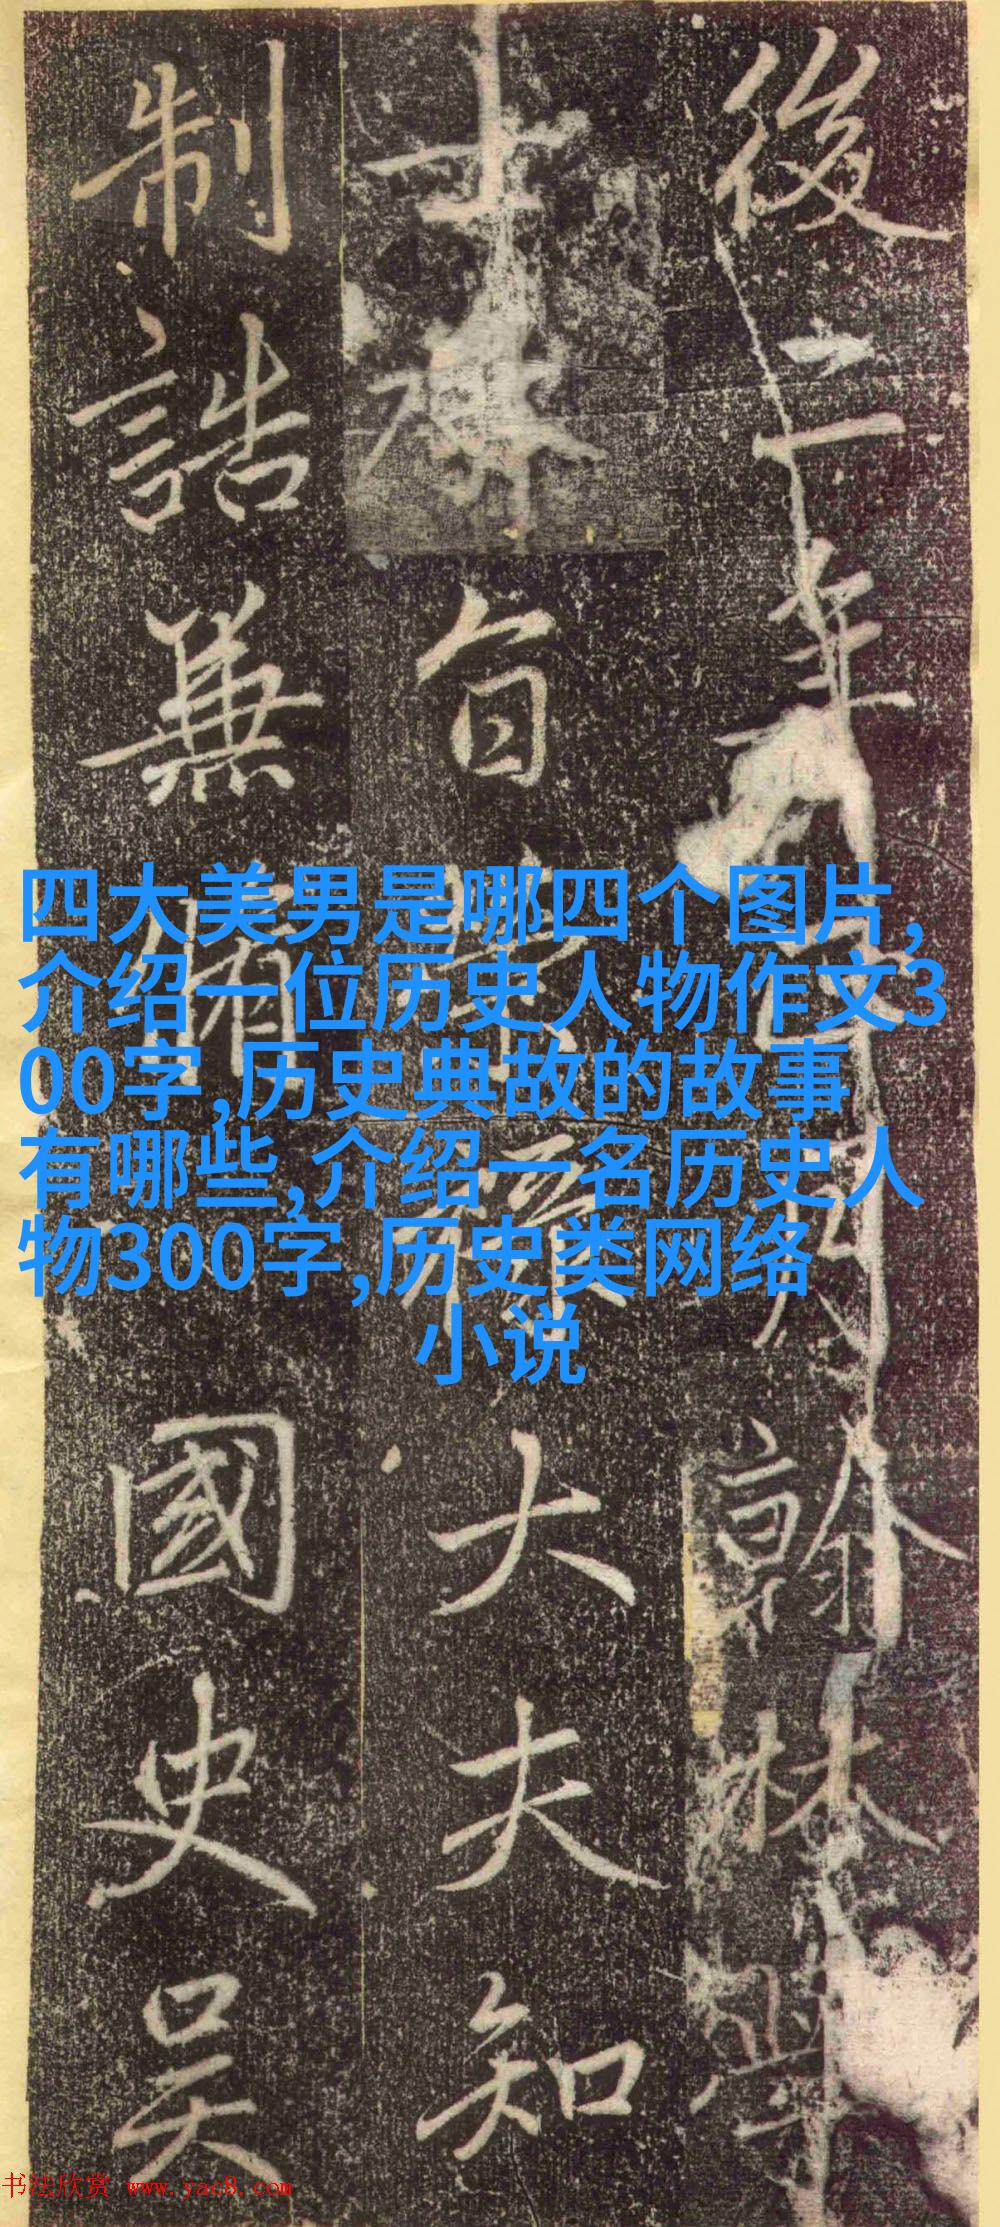 後二年月翰林學
士承旨榮祿大夫知
制誥兼脩國史吳
四大美男是哪四个图片,
介绍一位历史人物作文3
00字,历史典故的故事
有哪些,介绍一名历史人
物300字,历史类网络
小说
书法欣赏 www.yac8.com